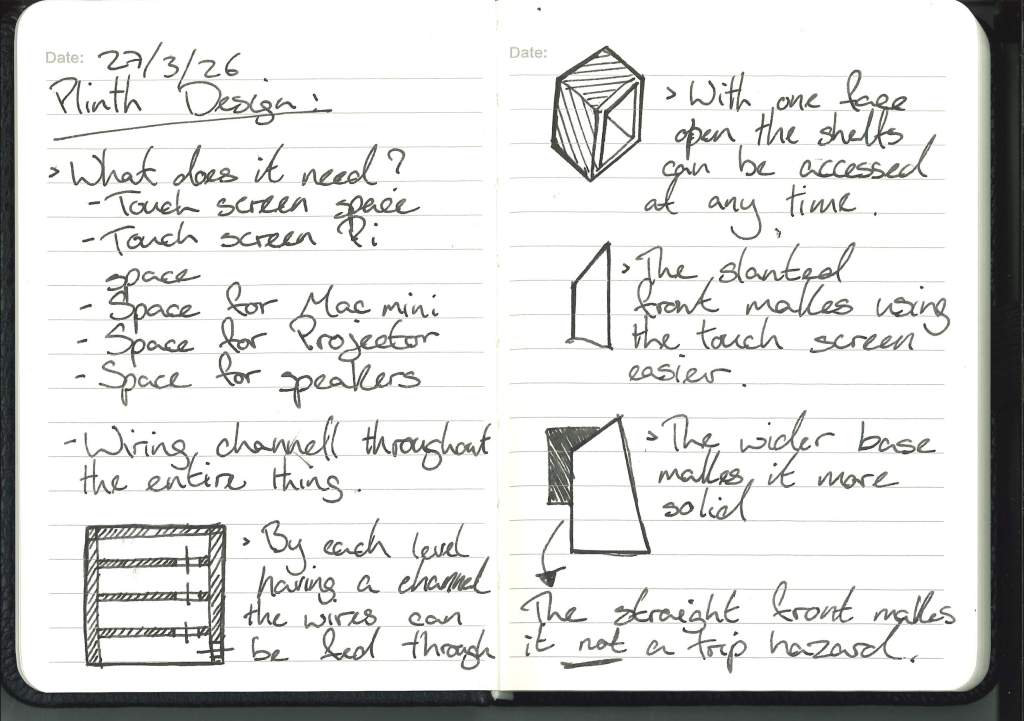 Date: 27/3/26
Plinth Design:
> What does it need?
- Touch screen space
- Touch screen Pi
space
- Space for Mac mini
- Space for Projector
- Space for speakers
- Wiring channell throughout
the entire thing.
> By each level
having a channel
the wires can
be fed through
Date:
> With one face
open the shelfs
can be accessed
at any time.
> The slanted
front makes using
the touch screen
easier.
> The wider base
makes it more
solid
The straight front makes
it not a trip hazard.